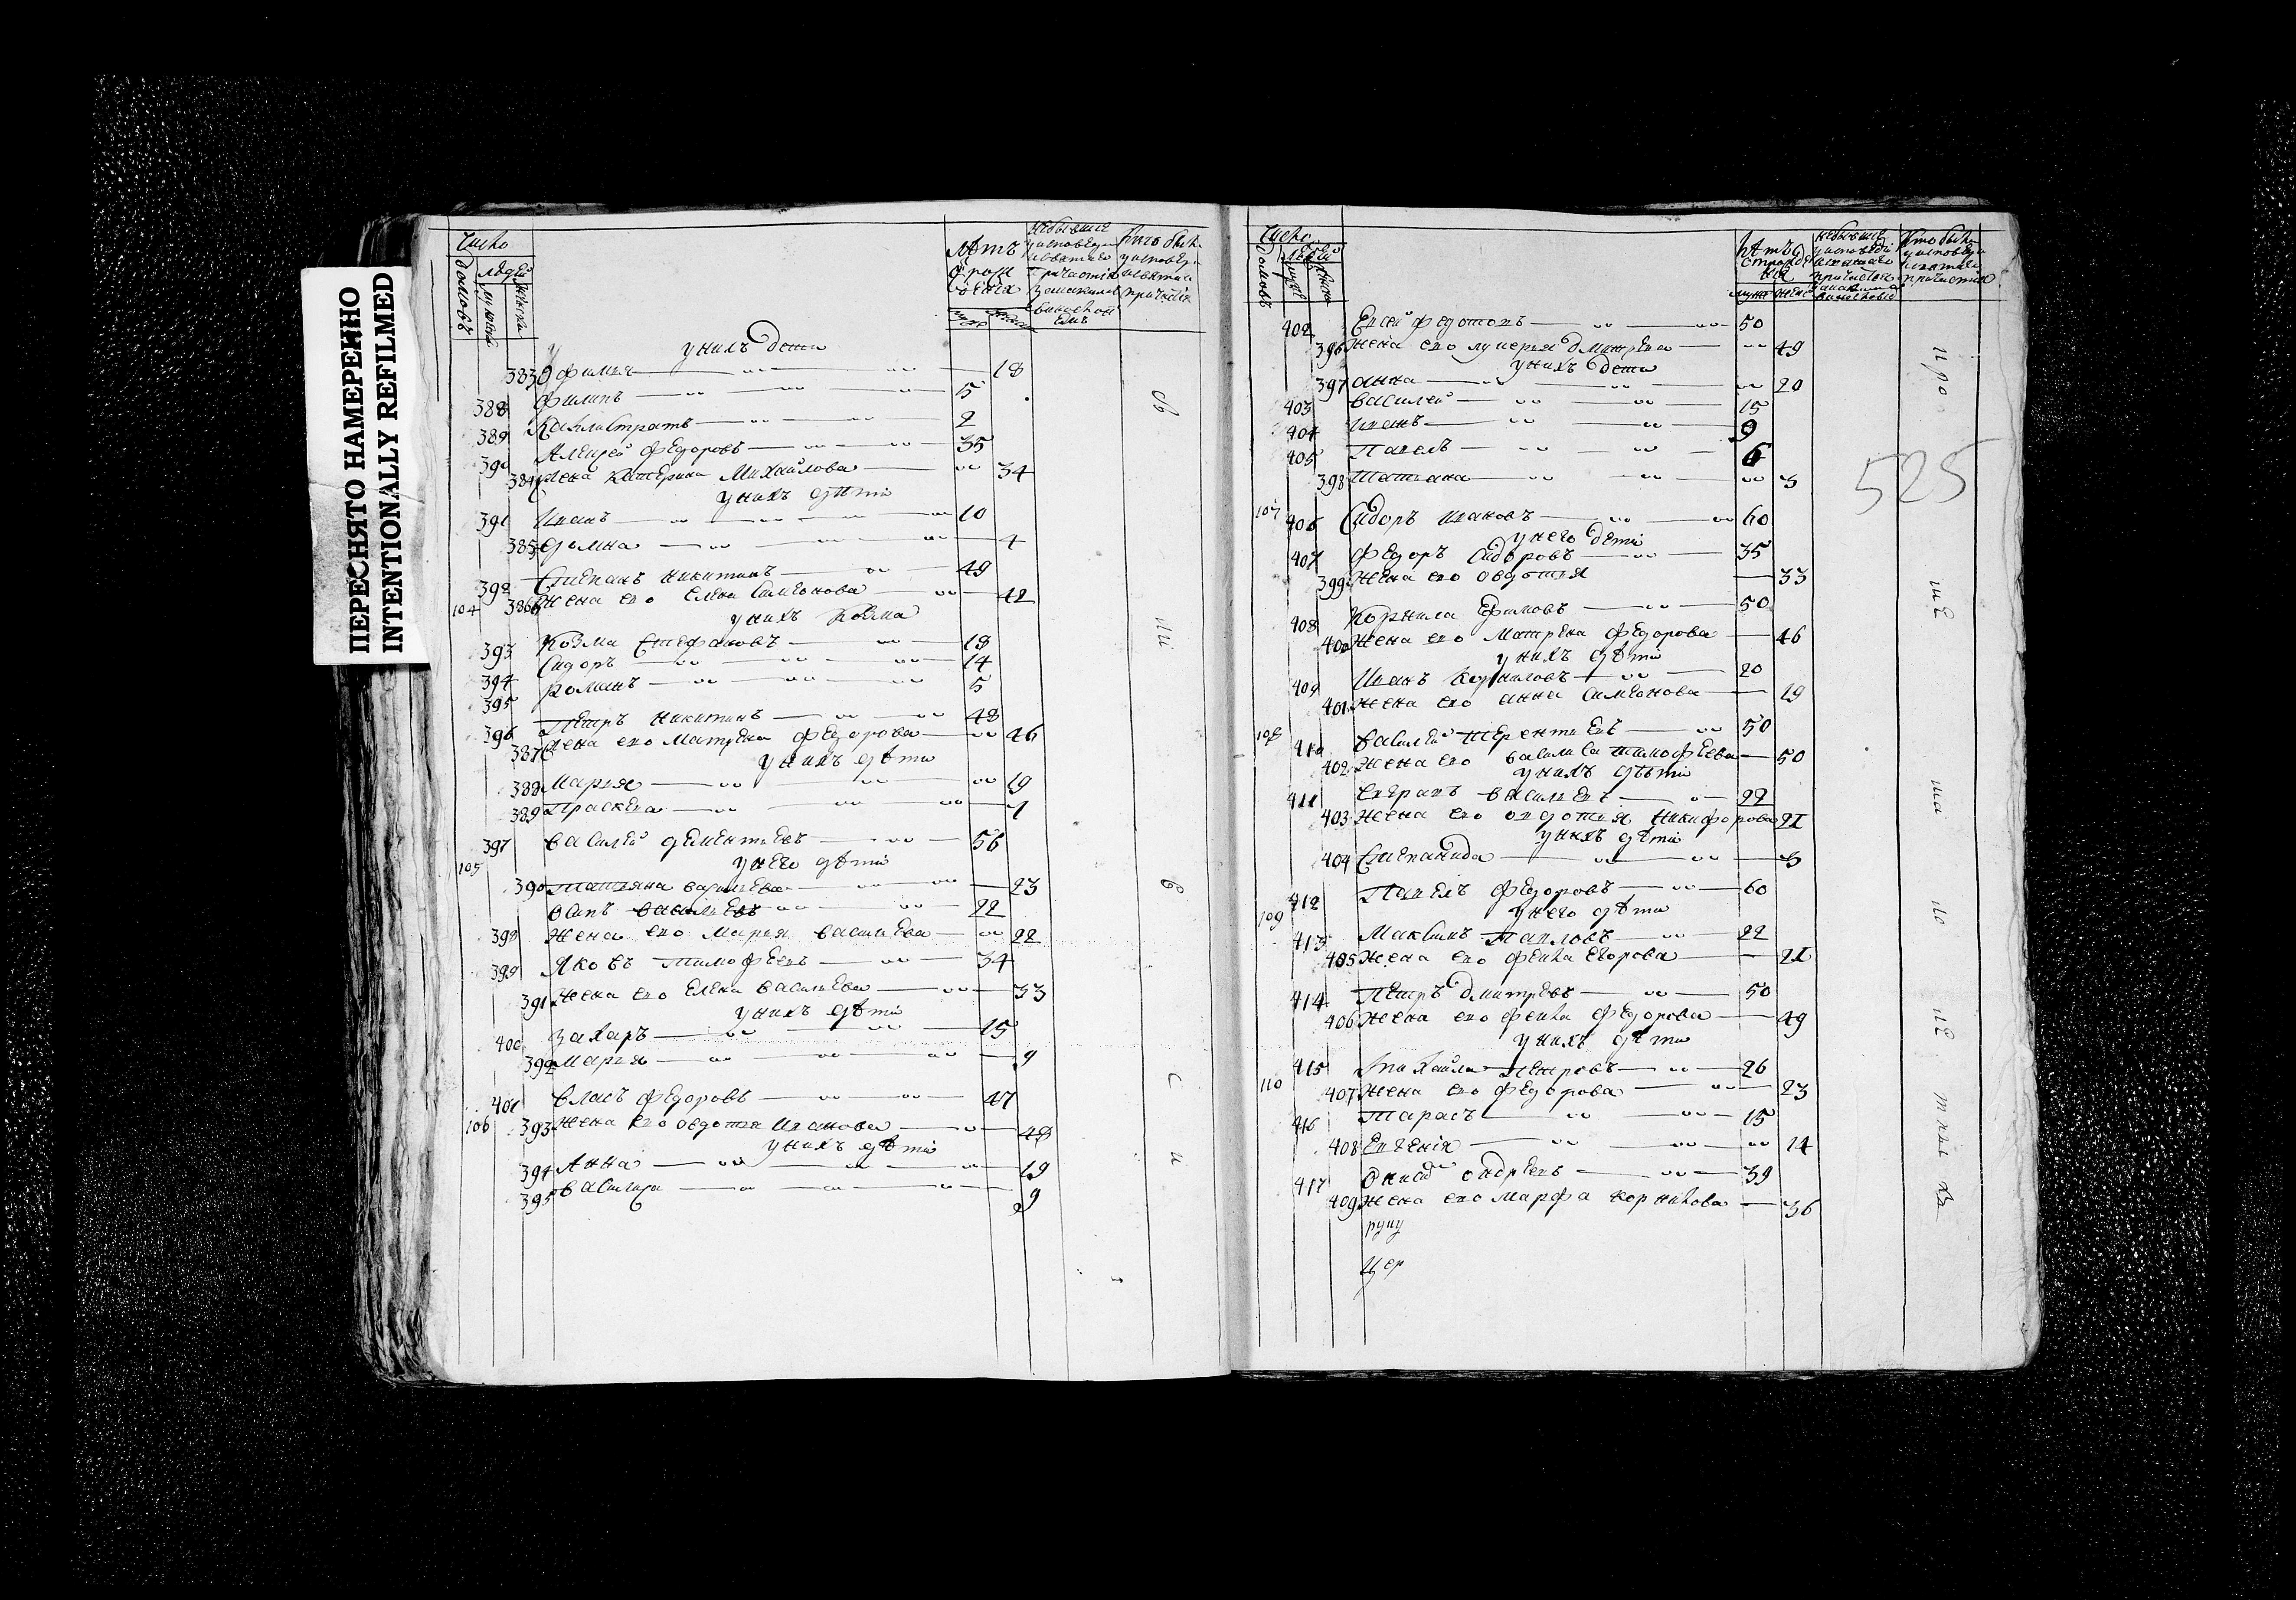 ПЕРЕСНЯТО НАМЕРЕННО
INTENTIONALLY REFILMED
Число
домовъ людей
Лѣтъ
у нихъ дети
383 Офимья 18
388 Филипъ 5
389 Калистратъ 2
390 Алеѯей Федоровъ 35
384 жена Катерина Михайлова 34
у нихъ дѣти
391 Иванъ 10
385 Домна 4
392 Степанъ Никитинъ 49
104 386 жена его Елена Симеонова 42
у нихъ Козма
393 Козма Стефановъ 18
394 Сидоръ 14
395 Романъ 5
396 Петръ Никитинъ 48
387 жена его Матрена Федорова 46
у нихъ дѣти
388 Марья 19
389 Праскева 7
397 Василей Дементьевъ 56
105 у него дѣти
390 Татьяна Васильева 23
Осипъ Васильевъ 22
398 жена его Марья Васильева 22
399 Яковъ Тимофеевъ 34
391 жена его Елена Васильева 33
у нихъ дѣти
400 Захаръ 15
392 Марья 9
401 Власъ Федоровъ 47
106 393 жена его Овдотья Иванова 48
у нихъ дѣти
394 Анна 19
395 Василиса 9
св
ли
е
с
и
Число
домовъ
402 Евсей Федотовъ 50
396 жена его Лукерья Дмитрева 49
у нихъ дети
397 Анна 20
403 Василей 15
404 Иванъ 9
405 Павелъ 6
398 Татьяна 3
107 406 Сидоръ Ивановъ 60
у него дети
407 Федоръ Сидоровъ 35
399 жена его Овдотья 33
408 Корнила Ефимовъ 50
400 жена его Матрена Федорова 46
у нихъ дѣти
409 Иванъ Корниловъ 20
401 жена его Анна Симеонова 19
108 410 Василей Терентьевъ 50
402 жена его Василиса Тимофеева 50
у нихъ дѣти
411 Севрапъ Васильевъ 22
403 жена его Овдотья Никифорова 21
у нихъ дѣти
404 Степанида 3
412 Павелъ Федоровъ 60
109 у него дѣти
413 Максимъ Павловъ 22
405 жена его Фекла Егорова 21
414 Петръ Дмитревъ 50
406 жена его Фекла Федорова 49
у нихъ дѣти
415 Михайла Петровъ 26
110 407 жена его Федорова 23
416 Тарасъ 15
408 Евгенія 14
417 Ондреевъ 39
409 жена его Марфа Корнилова 36
руку
цер
525
про
ше
ша
по
пе